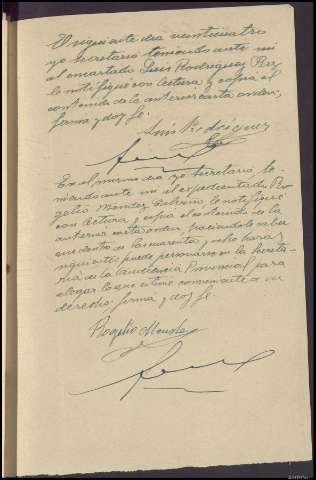 El siguiente dia veinticuatro
yo Secretario teniendo ante mi
al encartado Luis Rodriguez Paz
le notifiqué con lectura y copia el
contenido de la anterior carta orden,
firma y doy fe.
Luis Rodriguez
En el mismo dia yo Secretario te-
niendo ante mi el expedientado Ro-
gelio Mendez, le notifiqué
con lectura y copia el contenido de la
anterior carta orden, haciendole saber
que dentro de las cuarenta y ocho horas
siguientes puede personarse en la Secreta-
ria de la Audiencia Provincial para
alegar lo que estime conveniente a su
derecho, firma y doy fe.
Rogelio Mendez